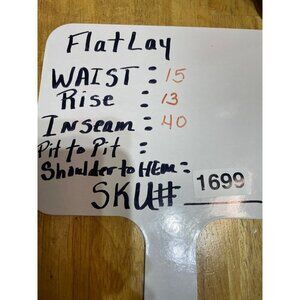 Flat Lay
WAIST : 15
Rise : 13
Inseam : 40
Pit to Pit :
Shoulder to HEM :
SKU# 1699